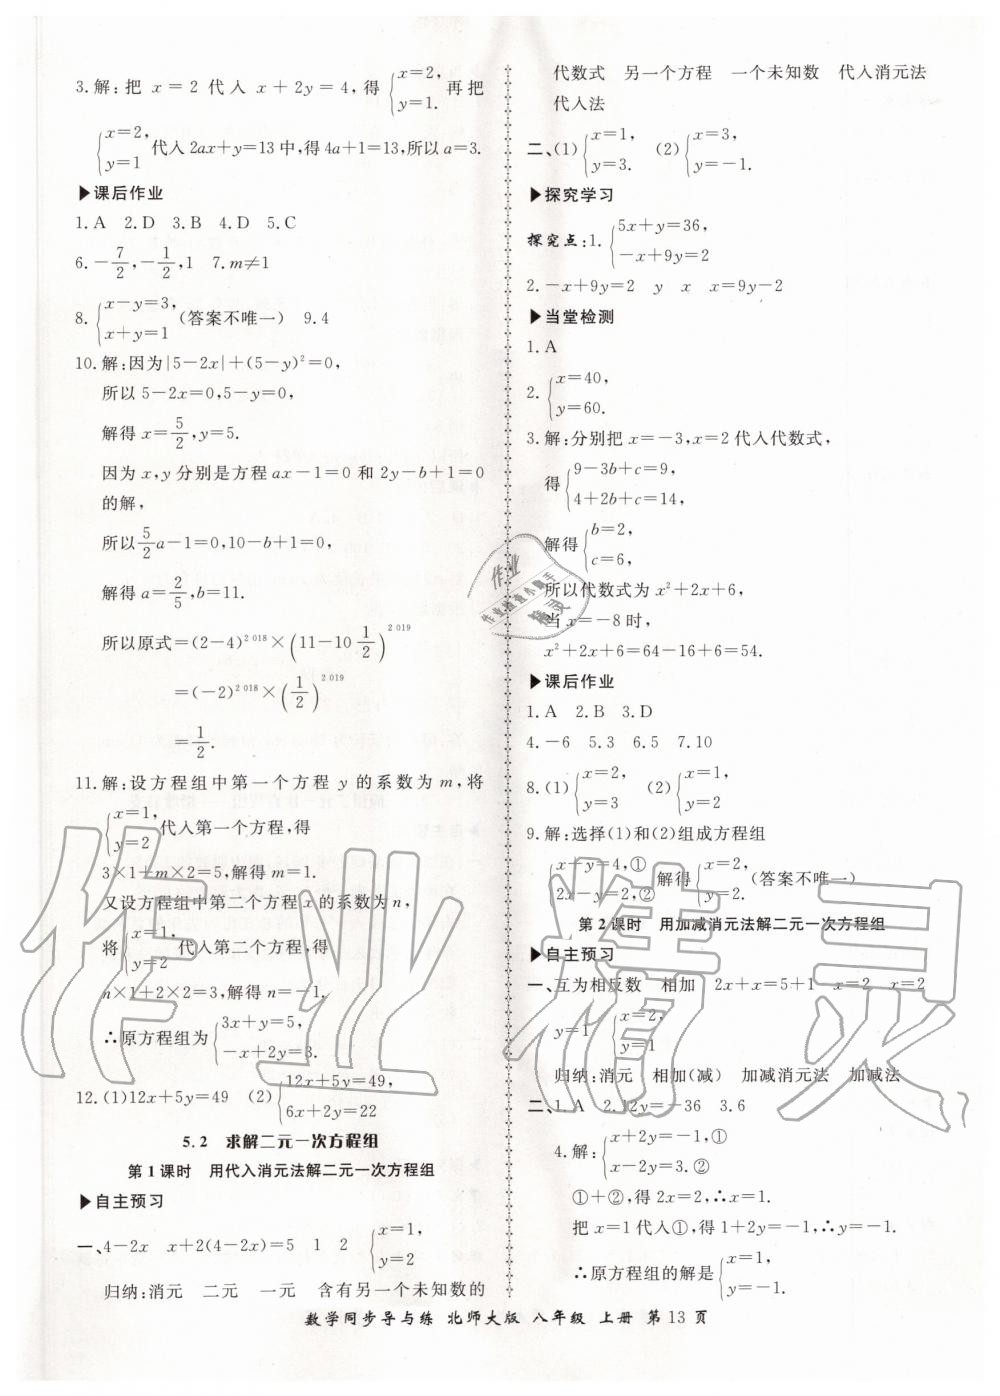 3.解:把 x=2 代入 x+2y=4,得{x=2, y=1. 再把
{x=2, y=1 代入 2ax+y=13中,得4a+1=13,所以a=3.
▶课后作业
1.A 2.D 3.B 4.D 5.C
6.-7/2,-1/2,1 7.m≠1
8.{x-y=3, x+y=1 (答案不唯一) 9.4
10.解:因为|5-2x|+(5-y)²=0,
所以5-2x=0,5-y=0,
解得x=5/2,y=5.
因为x,y分别是方程ax-1=0和2y-b+1=0
的解,
所以5/2a-1=0,10-b+1=0,
解得a=2/5,b=11.
所以原式=(2-4)^2 018×(11-10 1/2)^2 019
=(-2)^2 018×(1/2)^2 019
=1/2.
11.解:设方程组中第一个方程 y 的系数为 m,将
{x=1, y=2 代入第一个方程,得
3×1+m×2=5,解得m=1.
又设方程组中第二个方程x的系数为n,
将{x=1, y=2 代入第二个方程,得
n×1+2×2=3,解得n=-1.
∴原方程组为{3x+y=5, -x+2y=3.
12.(1)12x+5y=49 (2){12x+5y=49, 6x+2y=22
5.2 求解二元一次方程组
第1课时 用代入消元法解二元一次方程组
▶自主预习
一、4-2x x+2(4-2x)=5 1 2 {x=1, y=2
归纳:消元 二元 一元 含有另一个未知数的
代数式 另一个方程 一个未知数 代入消元法
代入法
二、(1){x=1, y=3. (2){x=3, y=-1.
▶探究学习
探究点:1.{5x+y=36, -x+9y=2
2.-x+9y=2 y x x=9y-2
▶当堂检测
1.A
2.{x=40, y=60.
3.解:分别把x=-3,x=2代入代数式,
得{9-3b+c=9, 4+2b+c=14,
解得{b=2, c=6,
所以代数式为x²+2x+6,
当x=-8时,
x²+2x+6=64-16+6=54.
▶课后作业
1.A 2.B 3.D
4.-6 5.3 6.5 7.10
8.(1){x=2, y=3 (2){x=1, y=2
9.解:选择(1)和(2)组成方程组
{x+y=4,① 2x-y=2,② 解得{x=2, y=2. (答案不唯一)
第2课时 用加减消元法解二元一次方程组
▶自主预习
一、互为相反数 相加 2x+x=5+1 x=2 x=2
y=1 {x=2, y=1
归纳:消元 相加(减) 加减消元法 加减法
二、1.A 2.12y=-36 3.6
4.解:{x+2y=-1,① x-2y=3.②
①+②,得2x=2,∴x=1.
把x=1代入①,得1+2y=-1,∴y=-1.
∴原方程组的解是{x=1, y=-1.
数学同步导与练 北师大版 八年级 上册 第13页
作业精灵
作业
作业检查小助手
精灵